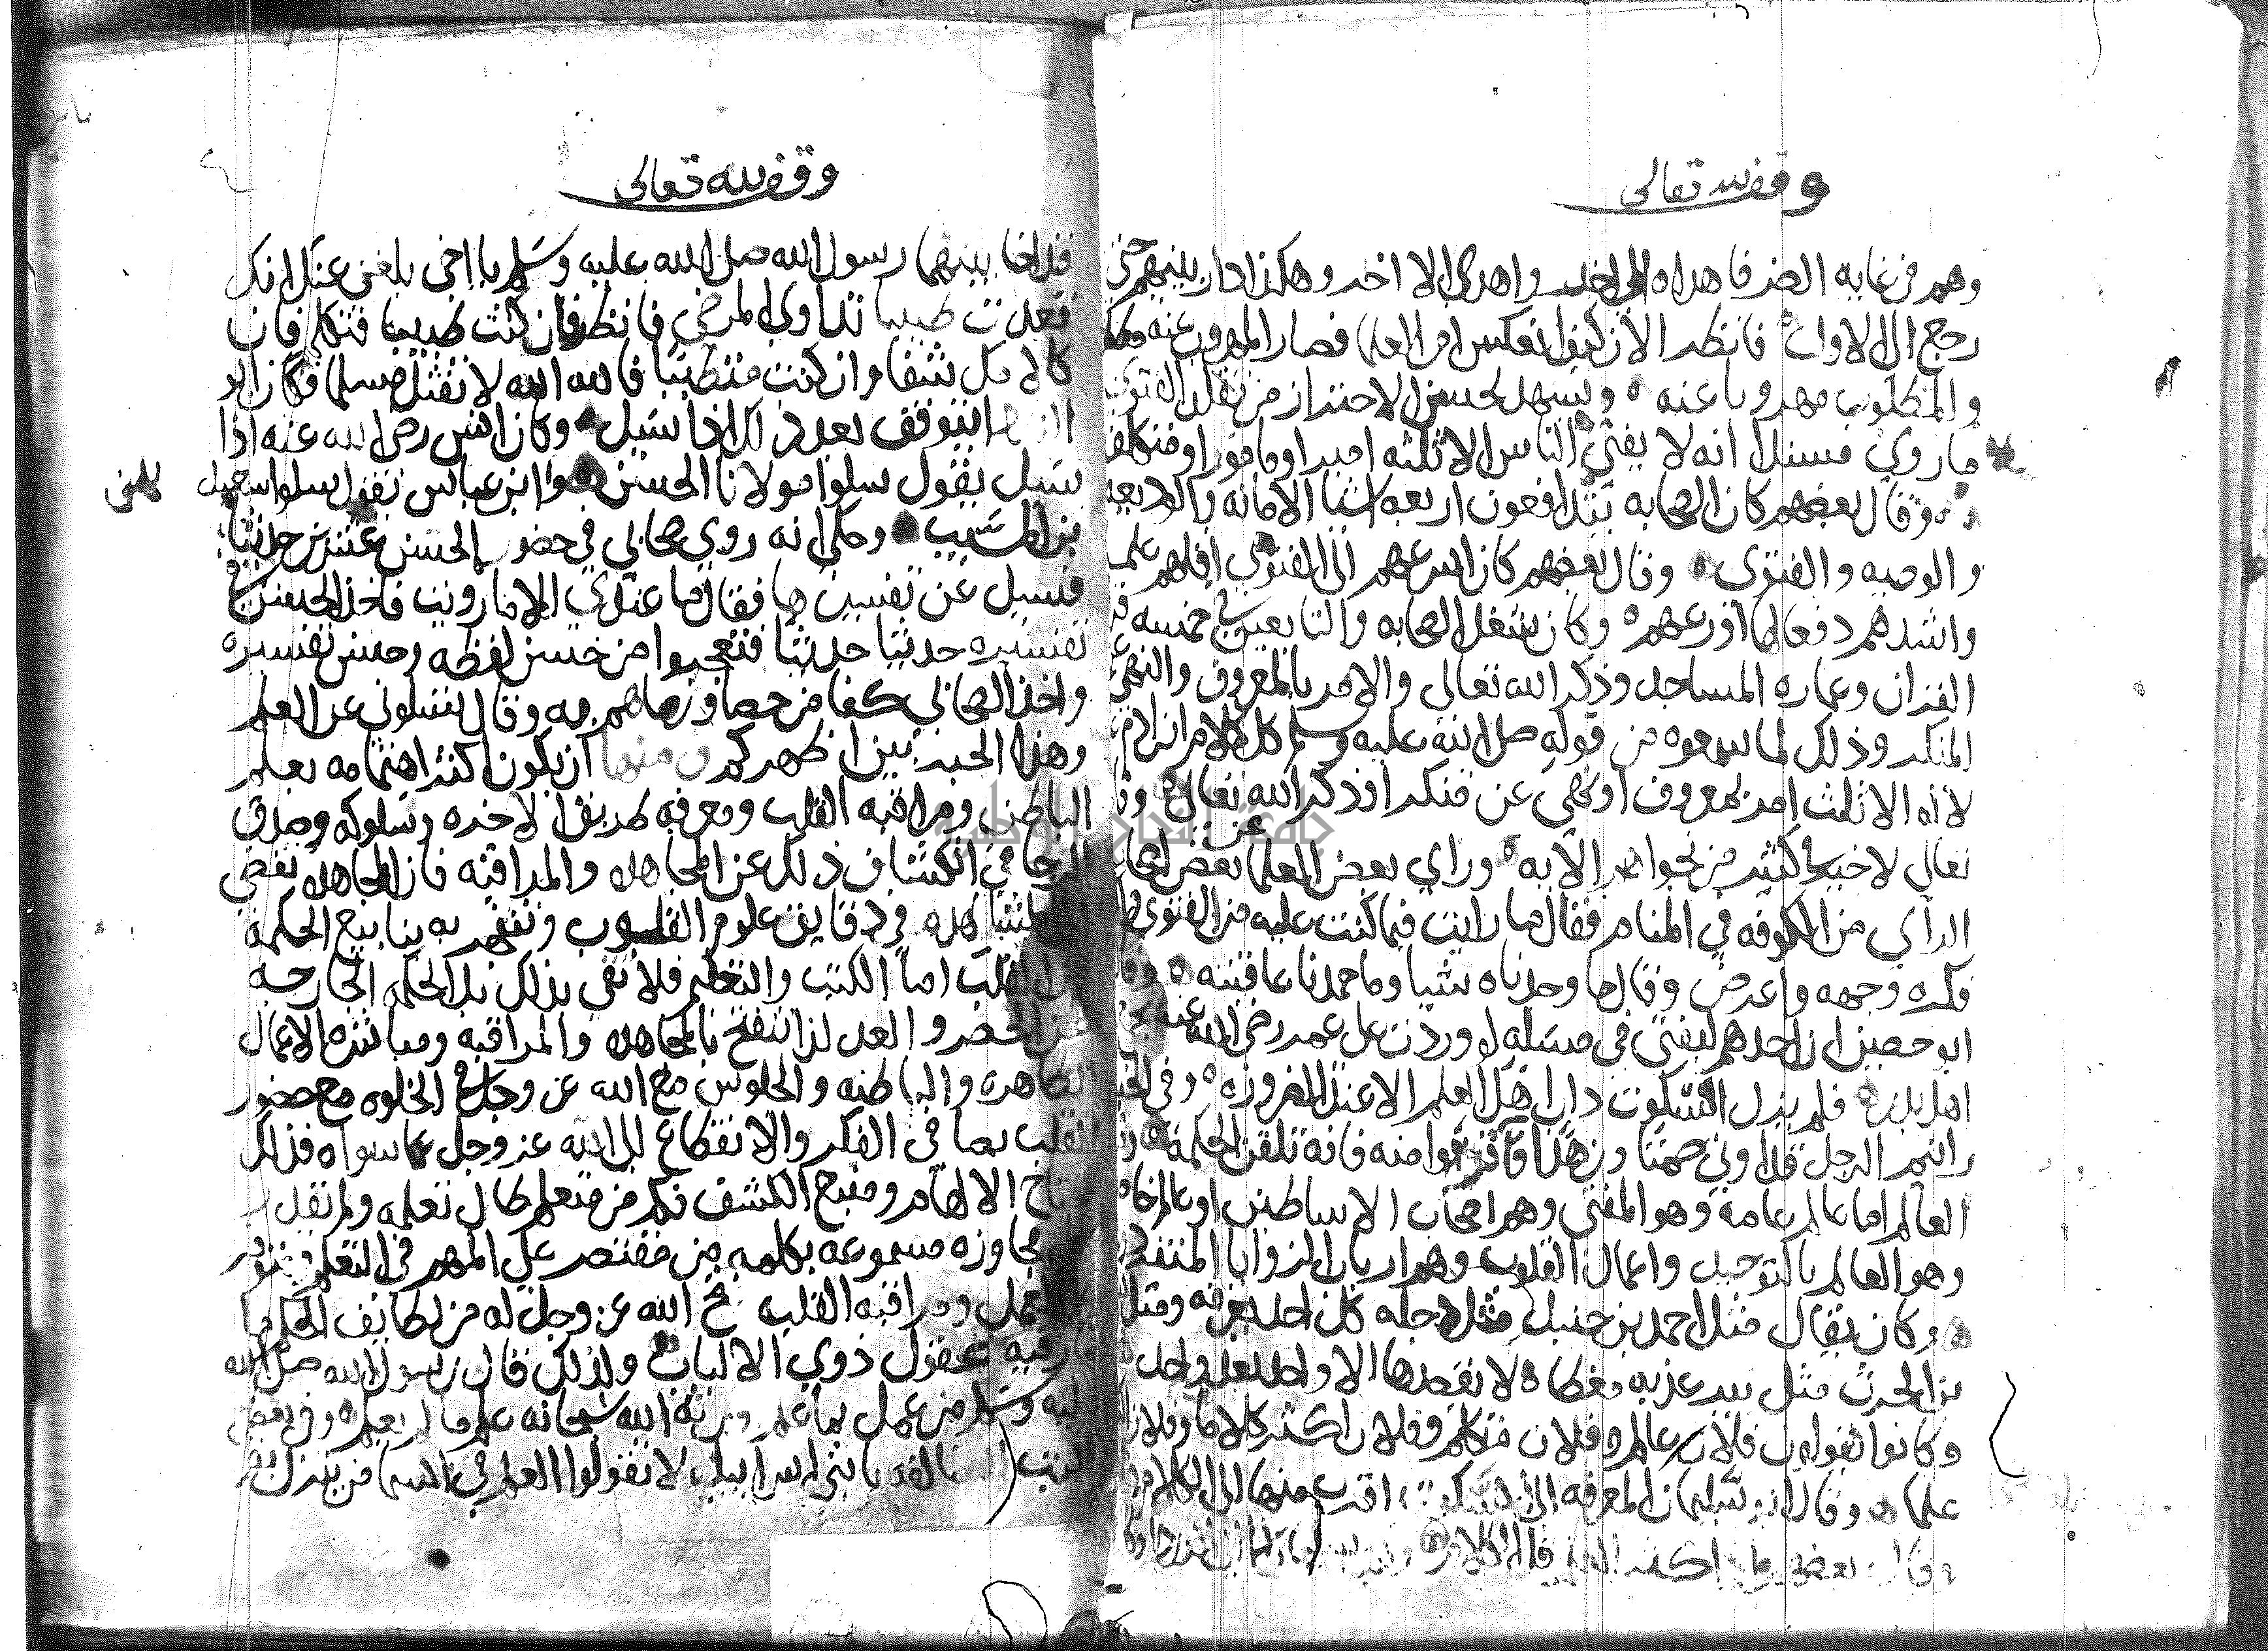 وقف لله تعالى
وهم في غايه الضر فاهداه الى اخر واهدى الاخر وهكذا دار بينهم حتى
رجع الى الاول فانظر الان كيف انعكس امر العلما فصار المهروب عنه
والمطلوب مهروبا عنه ويشهد لحسن الاحتراز من تقلد الفتوى
ماروي مسندا انه لا يفتي الناس الا ثلثه امير او مامور او متكلف
وقال بعضهم كان الصحابه يتدافعون اربعه اشيا الامانه والوديعه
والوصيه والفتوى وقال بعضهم كان اسرعهم الى الفتوى اقلهم علما
واشدهم دفعا لها اورعهم وكان شغل الصحابه والتابعين في خمسه
القران وعماره المساجد وذكر الله تعالى والامر بالمعروف والنهي
المنكر وذلك لما سمعوه من قوله صلى الله عليه وسلم كل كلام ابن ادم
لا له الا ثلث امر بمعروف او نهي عن منكر او ذكر الله تعالى
تعالى لا خير في كثير من نجواهم الايه وراي بعض العلما بعض اصحاب
الراي من الكوفه في المنام فقال ما رايت فيما كنت عليه من الفتوى
فكره وجهه واعرض وقال ما وجدناه شيا وما حمدنا عاقبته وقال
ابو حصين ان احدهم ليفتي في مسله لو وردت على عمر رضي الله عنه
اهل بدر فلم يزل السكوت داب اهل العلم الا عند الضروره وفي
رايتم الرجل قد اوتي صمتا وزهدا فاقتربوا منه فانه تلقن الحكمه
العالم اما عالم عامه وهو المفتي وهم اصحاب الاساطين او عالم
وهو العالم بالتوحيد واعمال القلوب وهم ارباب الزوايا
وكان يقال مثل احمد بن حنبل مثل دجله كل احد يغرفه ومثل
بن الحرث مثل بير عذبه مغطاه لا يقصدها الا واحد بعد واحد
وكانوا يقولون فلان عالم وفلان متكلم وفلان اكثر كلاما وفلان
علما وقال ابو سليمان المعرفه الى السكوت اقرب منها الى الكلام
وقال بعضهم اكثر العلم قل الكلام
وقف لله تعالى
قد اخا بينهما رسول الله صلى الله عليه وسلم يا اخي بلغني عنك انك
قعدت طبيبا تداوي المرضى فانظر فان كنت طبيبا فتكلم فان
كلامك شفا وان كنت متطببا فالله الله لا تقتل مسلما فكان ابو
الدردا يتوقف بعد ذلك اذا سيل وكان انس رضي الله عنه اذا
سيل يقول سلوا مولانا الحسن وابن عباس يقول سلوا سعيد
بن المسيب وحكي انه روى صحابي في حضور الحسن عشرين حديثا
فسيل عن تفسيرها فقال ما عندي الا ما رويت فاخذ الحسن في
تفسيره حديثا حديثا فتعجبوا من حسن لفظه وحسن تفسيره
واخذ الصحابي كفا من حصا ورماهم به وقال تسلوني عن العلم
وهذا الحبر بين اظهركم ومنها ان يكون اكثر اهتمامه بعلم
الباطن ومراقبه القلب ومعرفه طريق الاخره وسلوكه وصدق
الرجا في انكشاف ذلك عن المجاهده والمراقبه فان المجاهده تفضي
في دقايق علوم القلوب وتتفجر به ينابيع الحكمه
القلب اما الكتب والتعليم فلا تفي بذلك بل الحكمه الخارجه
عن الحصر والعد انما تنفتح بالمجاهده والمراقبه ومباشره الاعمال
الظاهره والباطنه والجلوس مع الله عز وجل في الخلوه مع حضور
القلب بصافي الفكر والانقطاع الى الله عز وجل عما سواه فذلك
مفتاح الالهام ومنبع الكشف فكم من متعلم طال تعلمه ولم يقدر
مجاوزه مسموعه بكلمه من مقتصر على المهم في التعلم
العمل ومراقبه القلب فتح الله عز وجل له من لطايف الحكم ما
حارت فيه عقول ذوي الالباب ولذلك قال رسول الله صلى الله
عليه وسلم من عمل بما علم ورثه الله سبحانه علم ما لم يعلم وفي بعض
الكتب السالفه يا بني اسراييل لا تقولوا العلم في السما من ينزل